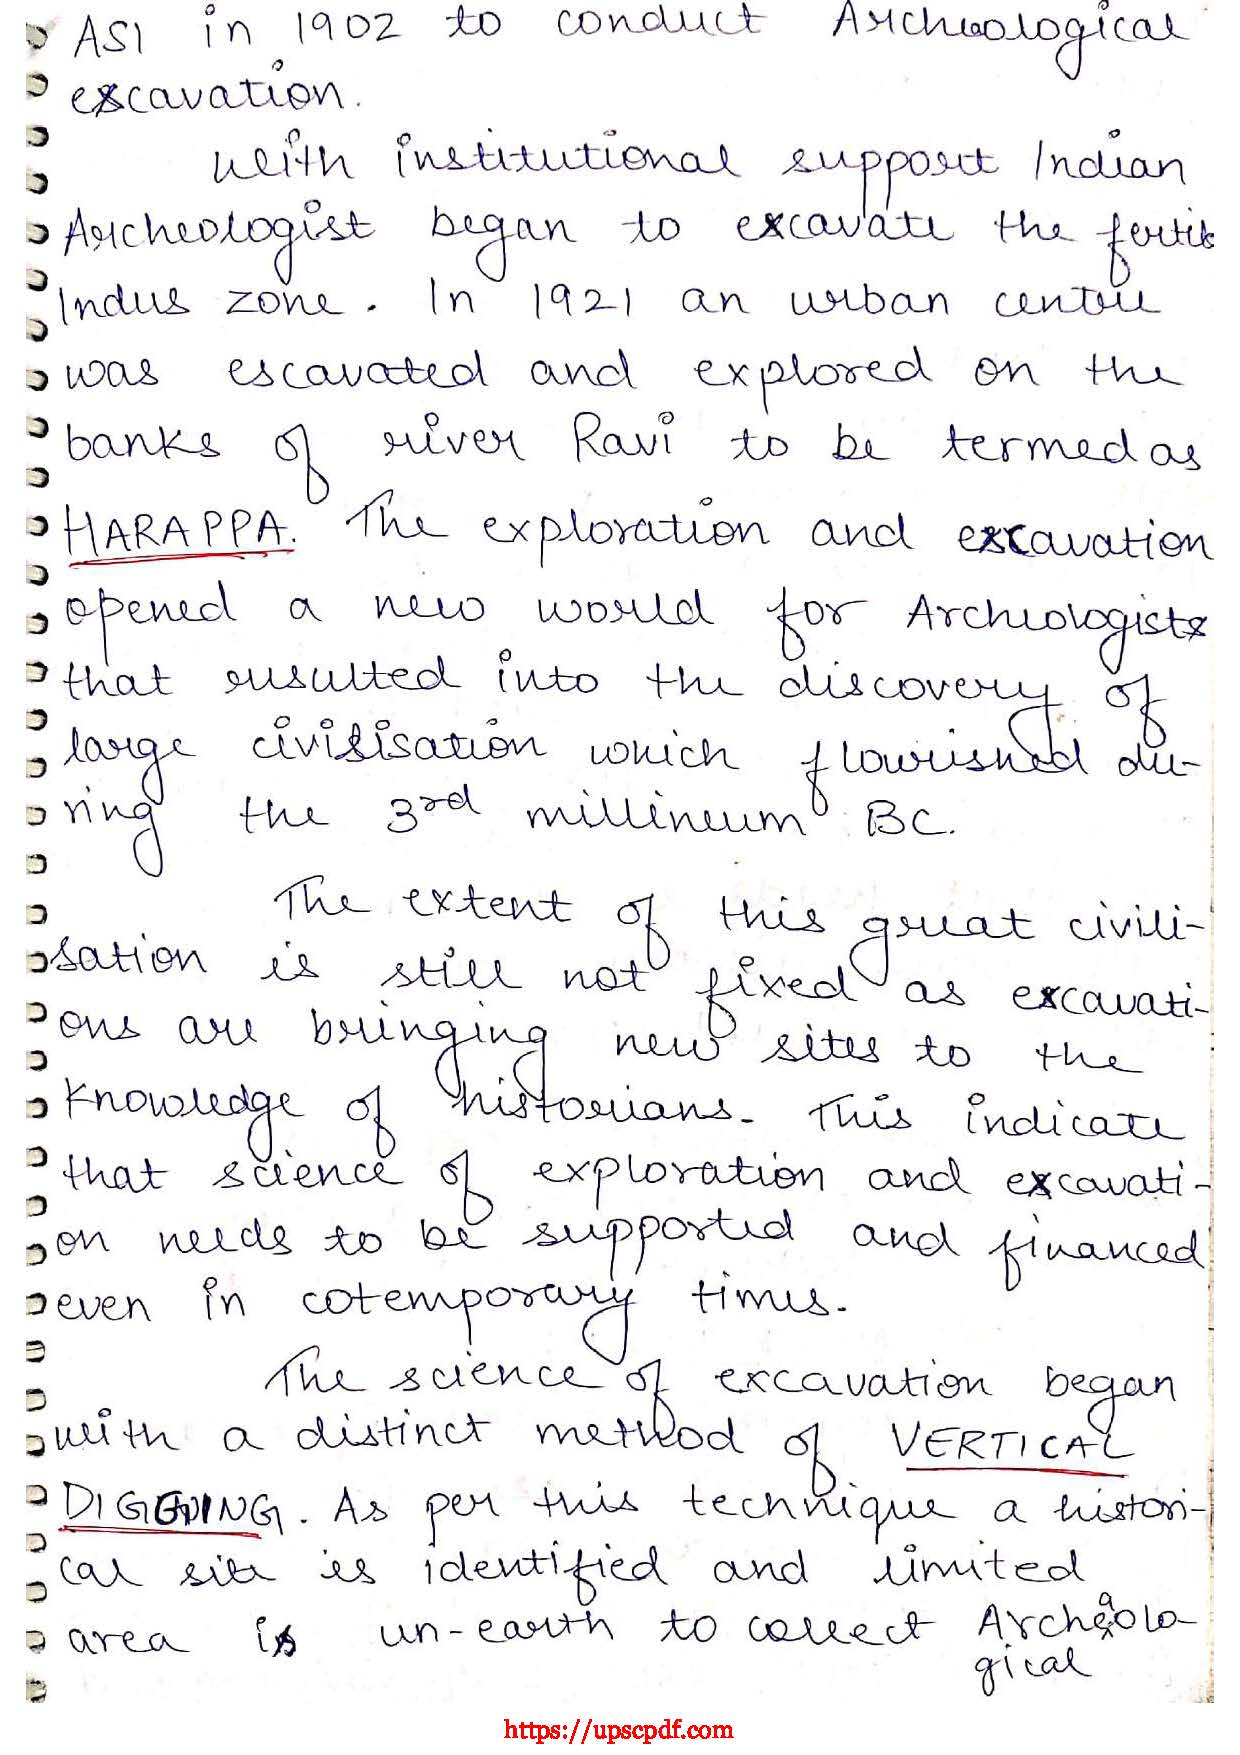 ASI in 1902 to conduct Archaeological
excavation.
With institutional support Indian
Archeologist began to excavate the fertile
Indus zone. In 1921 an urban centre
was escavated and explored on the
banks of river Ravi to be termed as
HARAPPA. The exploration and excavation
opened a new world for Archeologists
that resulted into the discovery of
large civilisation which flourished du-
ring the 3rd millineum BC.
The extent of this great civili-
sation is still not fixed as excavati-
ons are bringing new sites to the
knowledge of historians. This indicate
that science of exploration and excavati-
on needs to be supported and financed
even in cotemporary times.
The science of excavation began
with a distinct method of VERTICAL
DIGGING. As per this technique a histori-
cal site is identified and limited
area is un-earth to collect Archaeolo-
gical
https://upscpdf.com